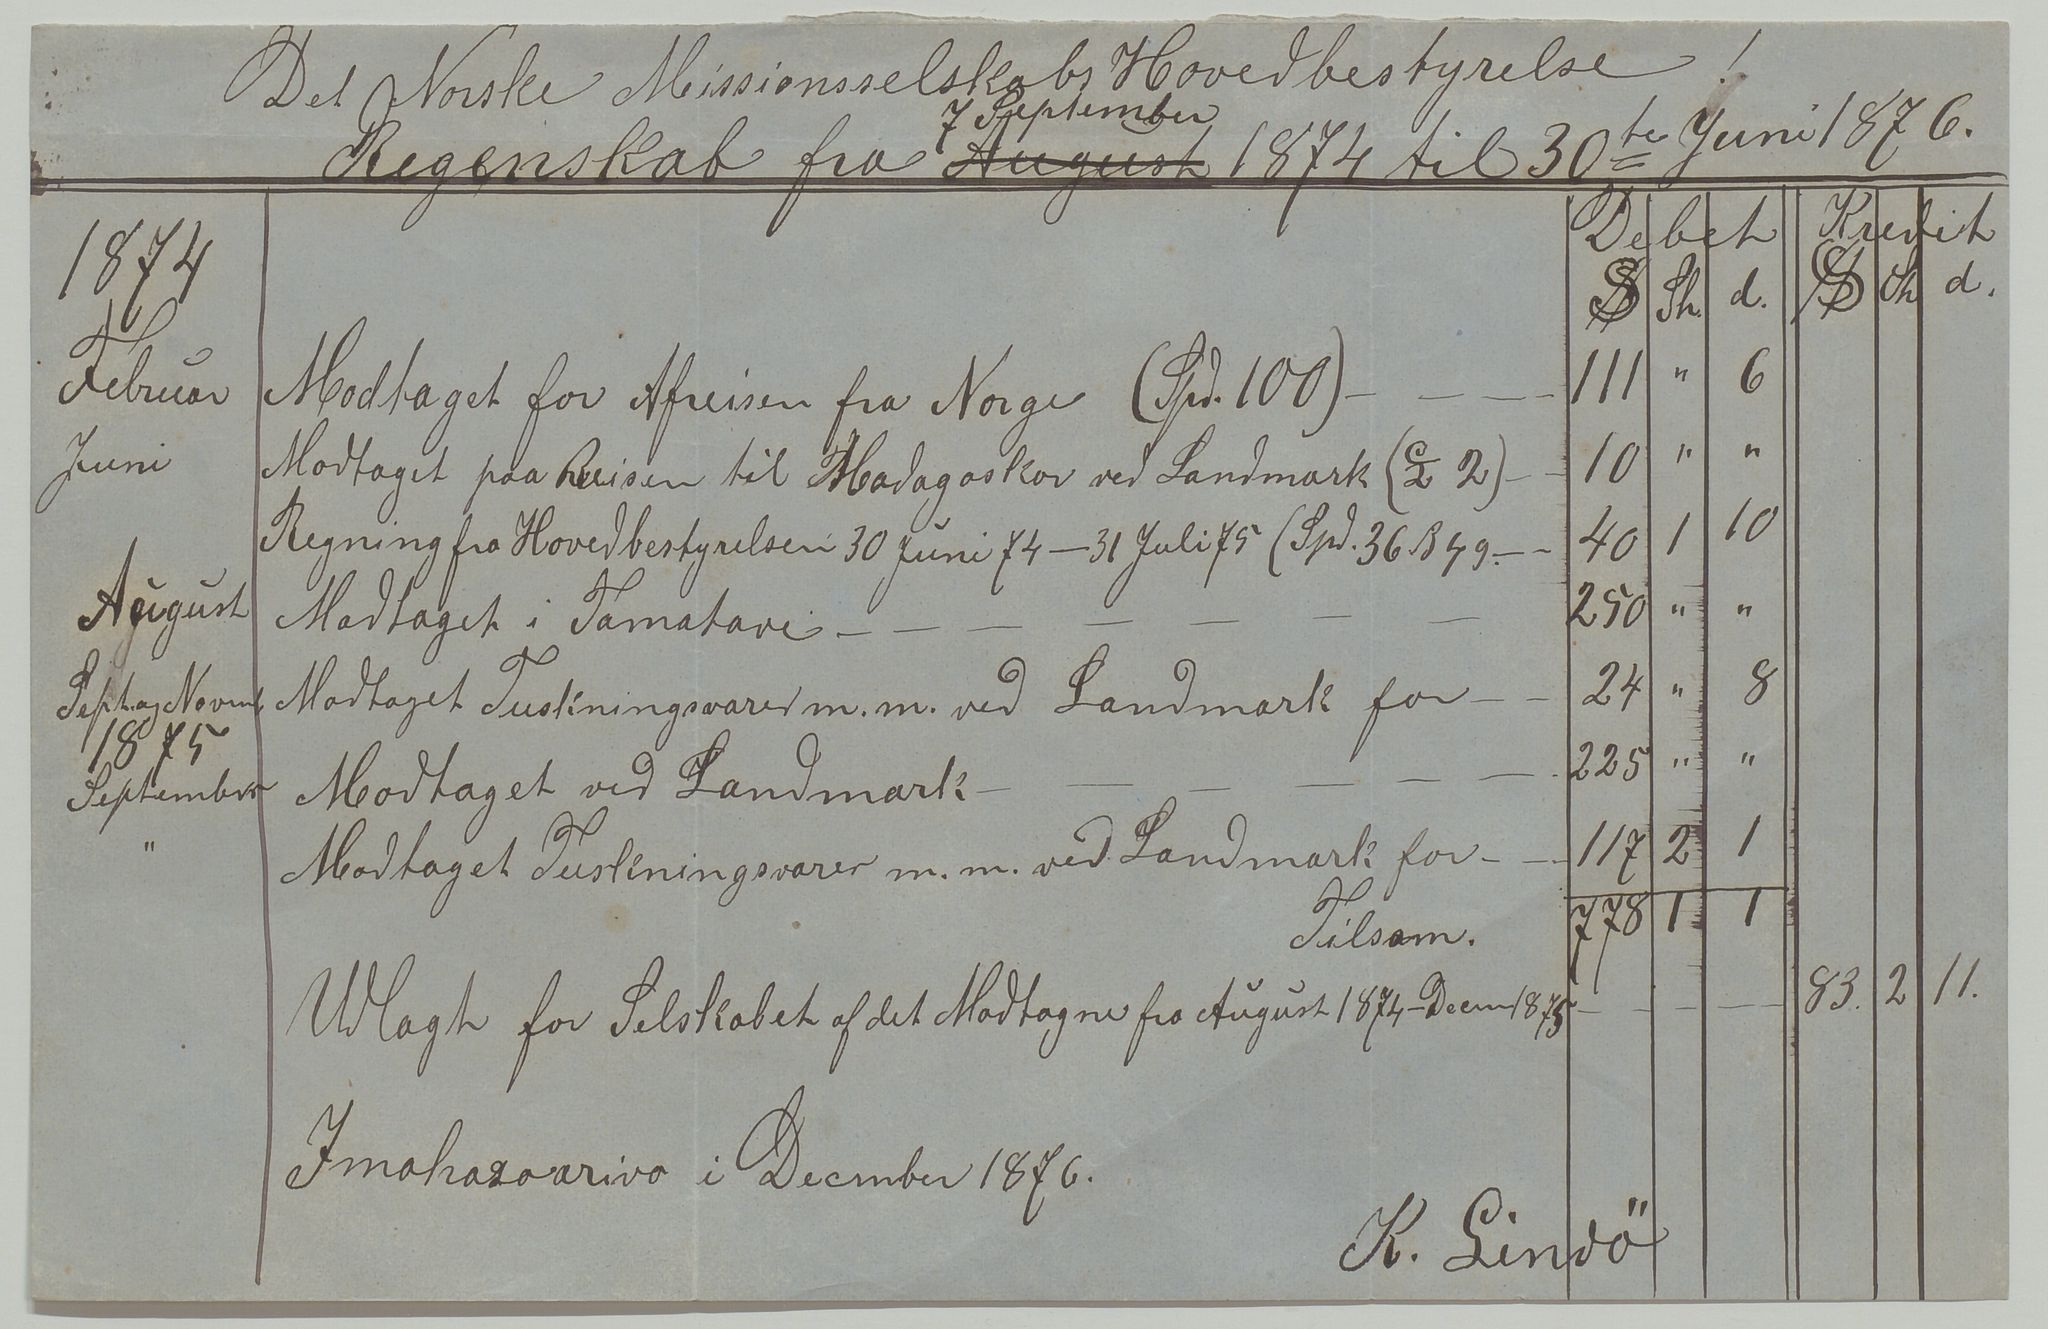 Det Norske Missionsselskabs Hovedbestyrelse!
7 September
Regenskab fra August 1874 til 30te Juni 1876.
Debet Kredit
1874 $ Sh. d. $ Sh d.
Februar Modtaget for Afreisen fra Norge (Spd. 100) - - - - 111 " 6
Juni Modtaget paa Reisen til Madagaskar ved Landmark (£ 2) - - 10 " "
Regning fra Hovedbestyrelsen 30 Juni 74 - 31 Juli 75 (Spd. 36 ß 49. - - 40 1 10
August Modtaget i Tamatave - - - - - - - - 250 " "
Sept. og Novemb. Modtaget Tuskningsvarer m. m. ved Landmark for - - 24 " 8
1875
September Modtaget ved Landmark - - - - - - - 225 " "
" Modtaget Tuskningsvarer m. m. ved Landmark for - - - 117 2 1
Tilsam. 778 1 1
Udlagt for Selskabet af det Modtagne fra August 1874 - Decem 1875 - - - - 83. 2 11.
Imahazoarivo i December 1876.
K. Lindö